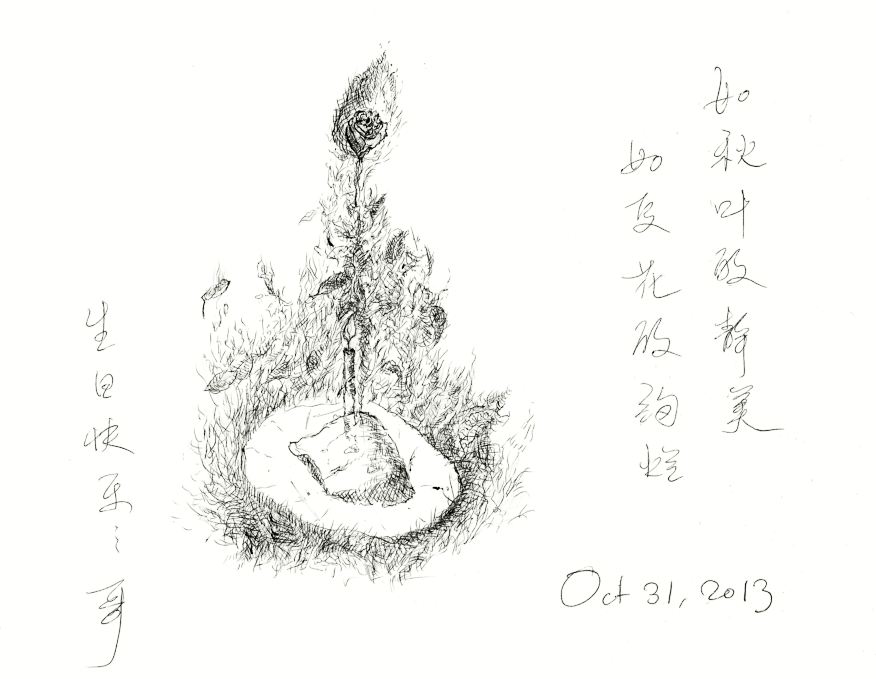 如秋叶般静美
如夏花般绚烂
生日快乐
哥
Oct 31, 2013